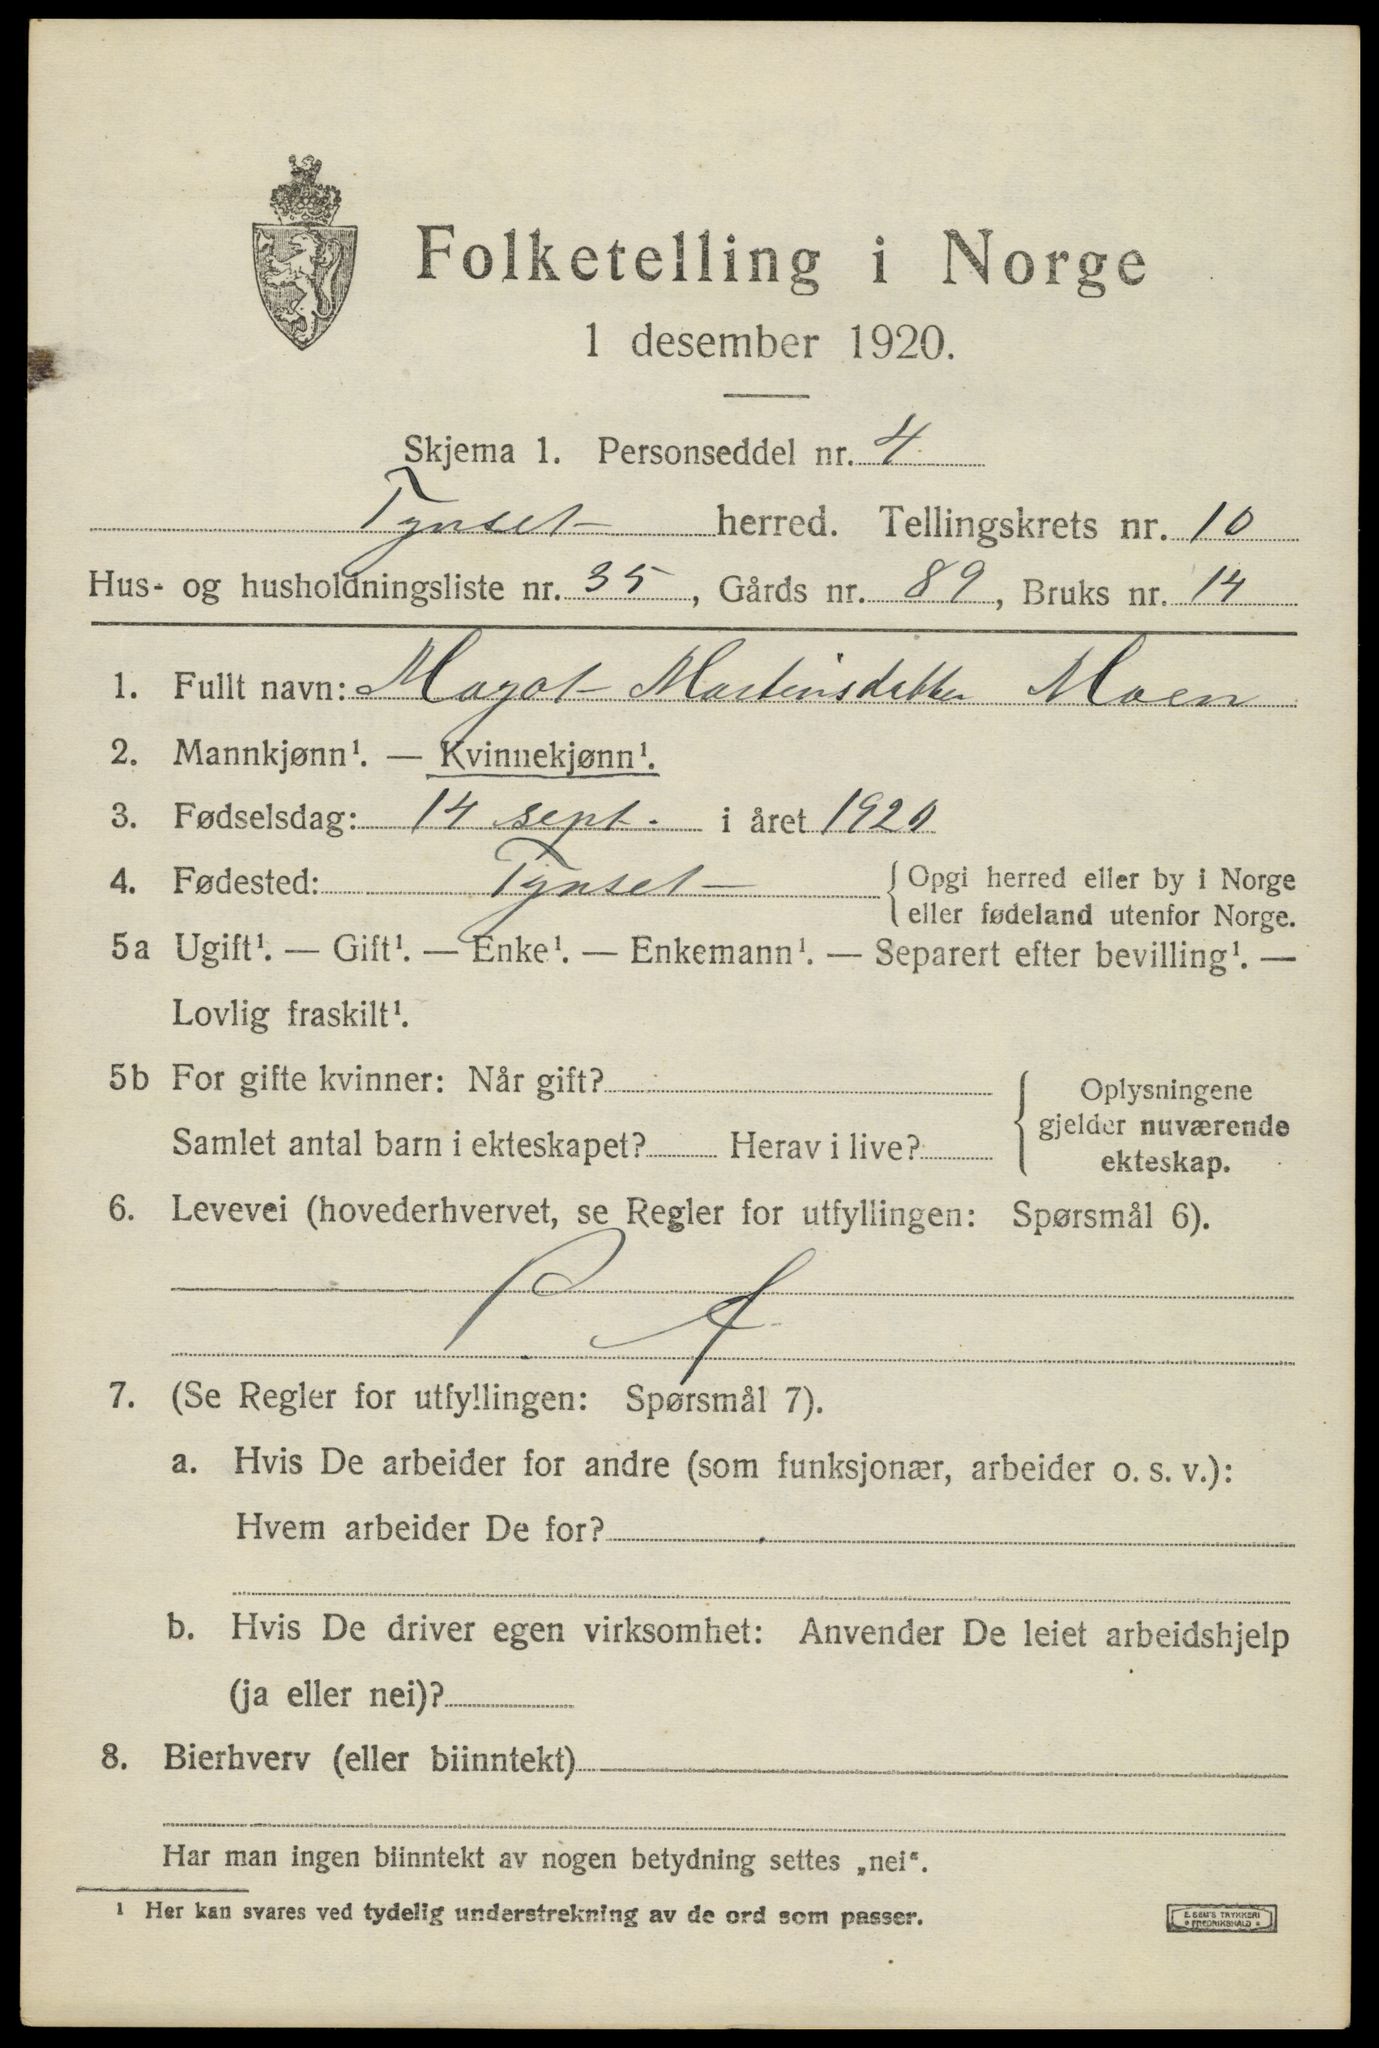 Folketelling i Norge
1 desember 1920.
Skjema 1. Personseddel nr. 4
Tynset herred. Tellingskrets nr. 10
Hus- og husholdningsliste nr. 35, Gårds nr. 89, Bruks nr. 14
1. Fullt navn: Magot Martinsdatter Moen
2. Mannkjønn¹. — Kvinnekjønn¹.
3. Fødselsdag: 14 sept. i året 1920
4. Fødested: Tynset { Opgi herred eller by i Norge
eller fødeland utenfor Norge.
5a Ugift¹. — Gift¹. — Enke¹. — Enkemann¹. — Separert efter bevilling¹. —
Lovlig fraskilt¹.
5b For gifte kvinner: Når gift?
Samlet antal barn i ekteskapet? Herav i live?
Oplysningene
gjelder nuværende
ekteskap.
6. Levevei (hovederhvervet, se Regler for utfyllingen: Spørsmål 6).
7. (Se Regler for utfyllingen: Spørsmål 7).
a. Hvis De arbeider for andre (som funksjonær, arbeider o. s. v.):
Hvem arbeider De for?
b. Hvis De driver egen virksomhet: Anvender De leiet arbeidshjelp
(ja eller nei)?
8. Bierhverv (eller biinntekt)
Har man ingen biinntekt av nogen betydning settes „nei“.
¹ Her kan svares ved tydelig understrekning av de ord som passer.
E. SEM'S TRYKKERI
FREDRIKSHALD